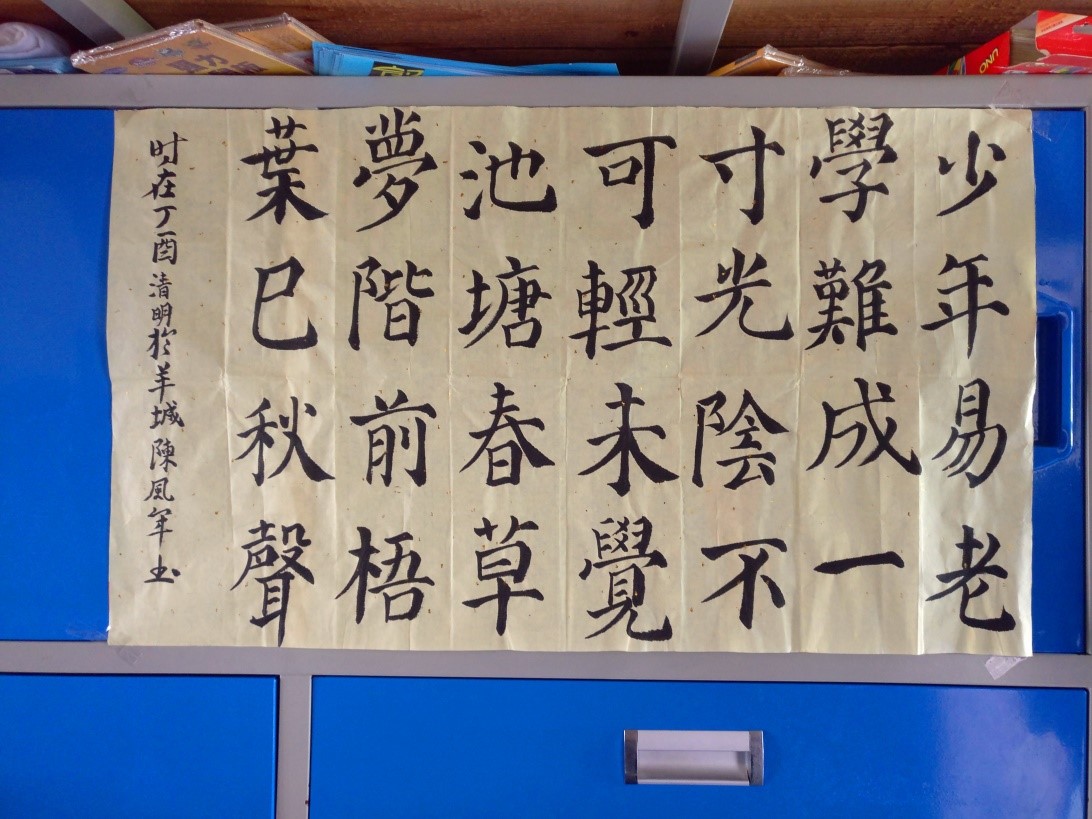 少年易老
學難成一
寸光陰不
可輕未覺
池塘春草
夢階前梧
葉已秋聲
时在丁酉清明於羊城陳風年书
UNO